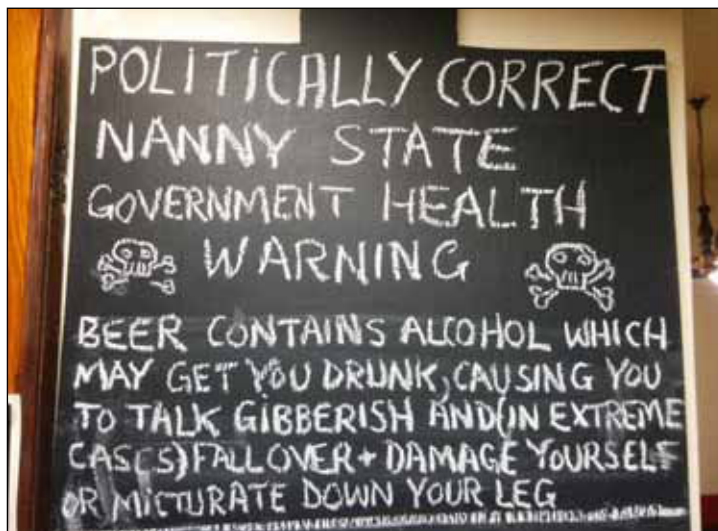 POLITICALLY CORRECT
NANNY STATE
GOVERNMENT HEALTH
WARNING
BEER CONTAINS ALCOHOL WHICH
MAY GET YOU DRUNK, CAUSING YOU
TO TALK GIBBERISH AND (IN EXTREME
CASES) FALL OVER + DAMAGE YOURSELF
OR MICTURATE DOWN YOUR LEG